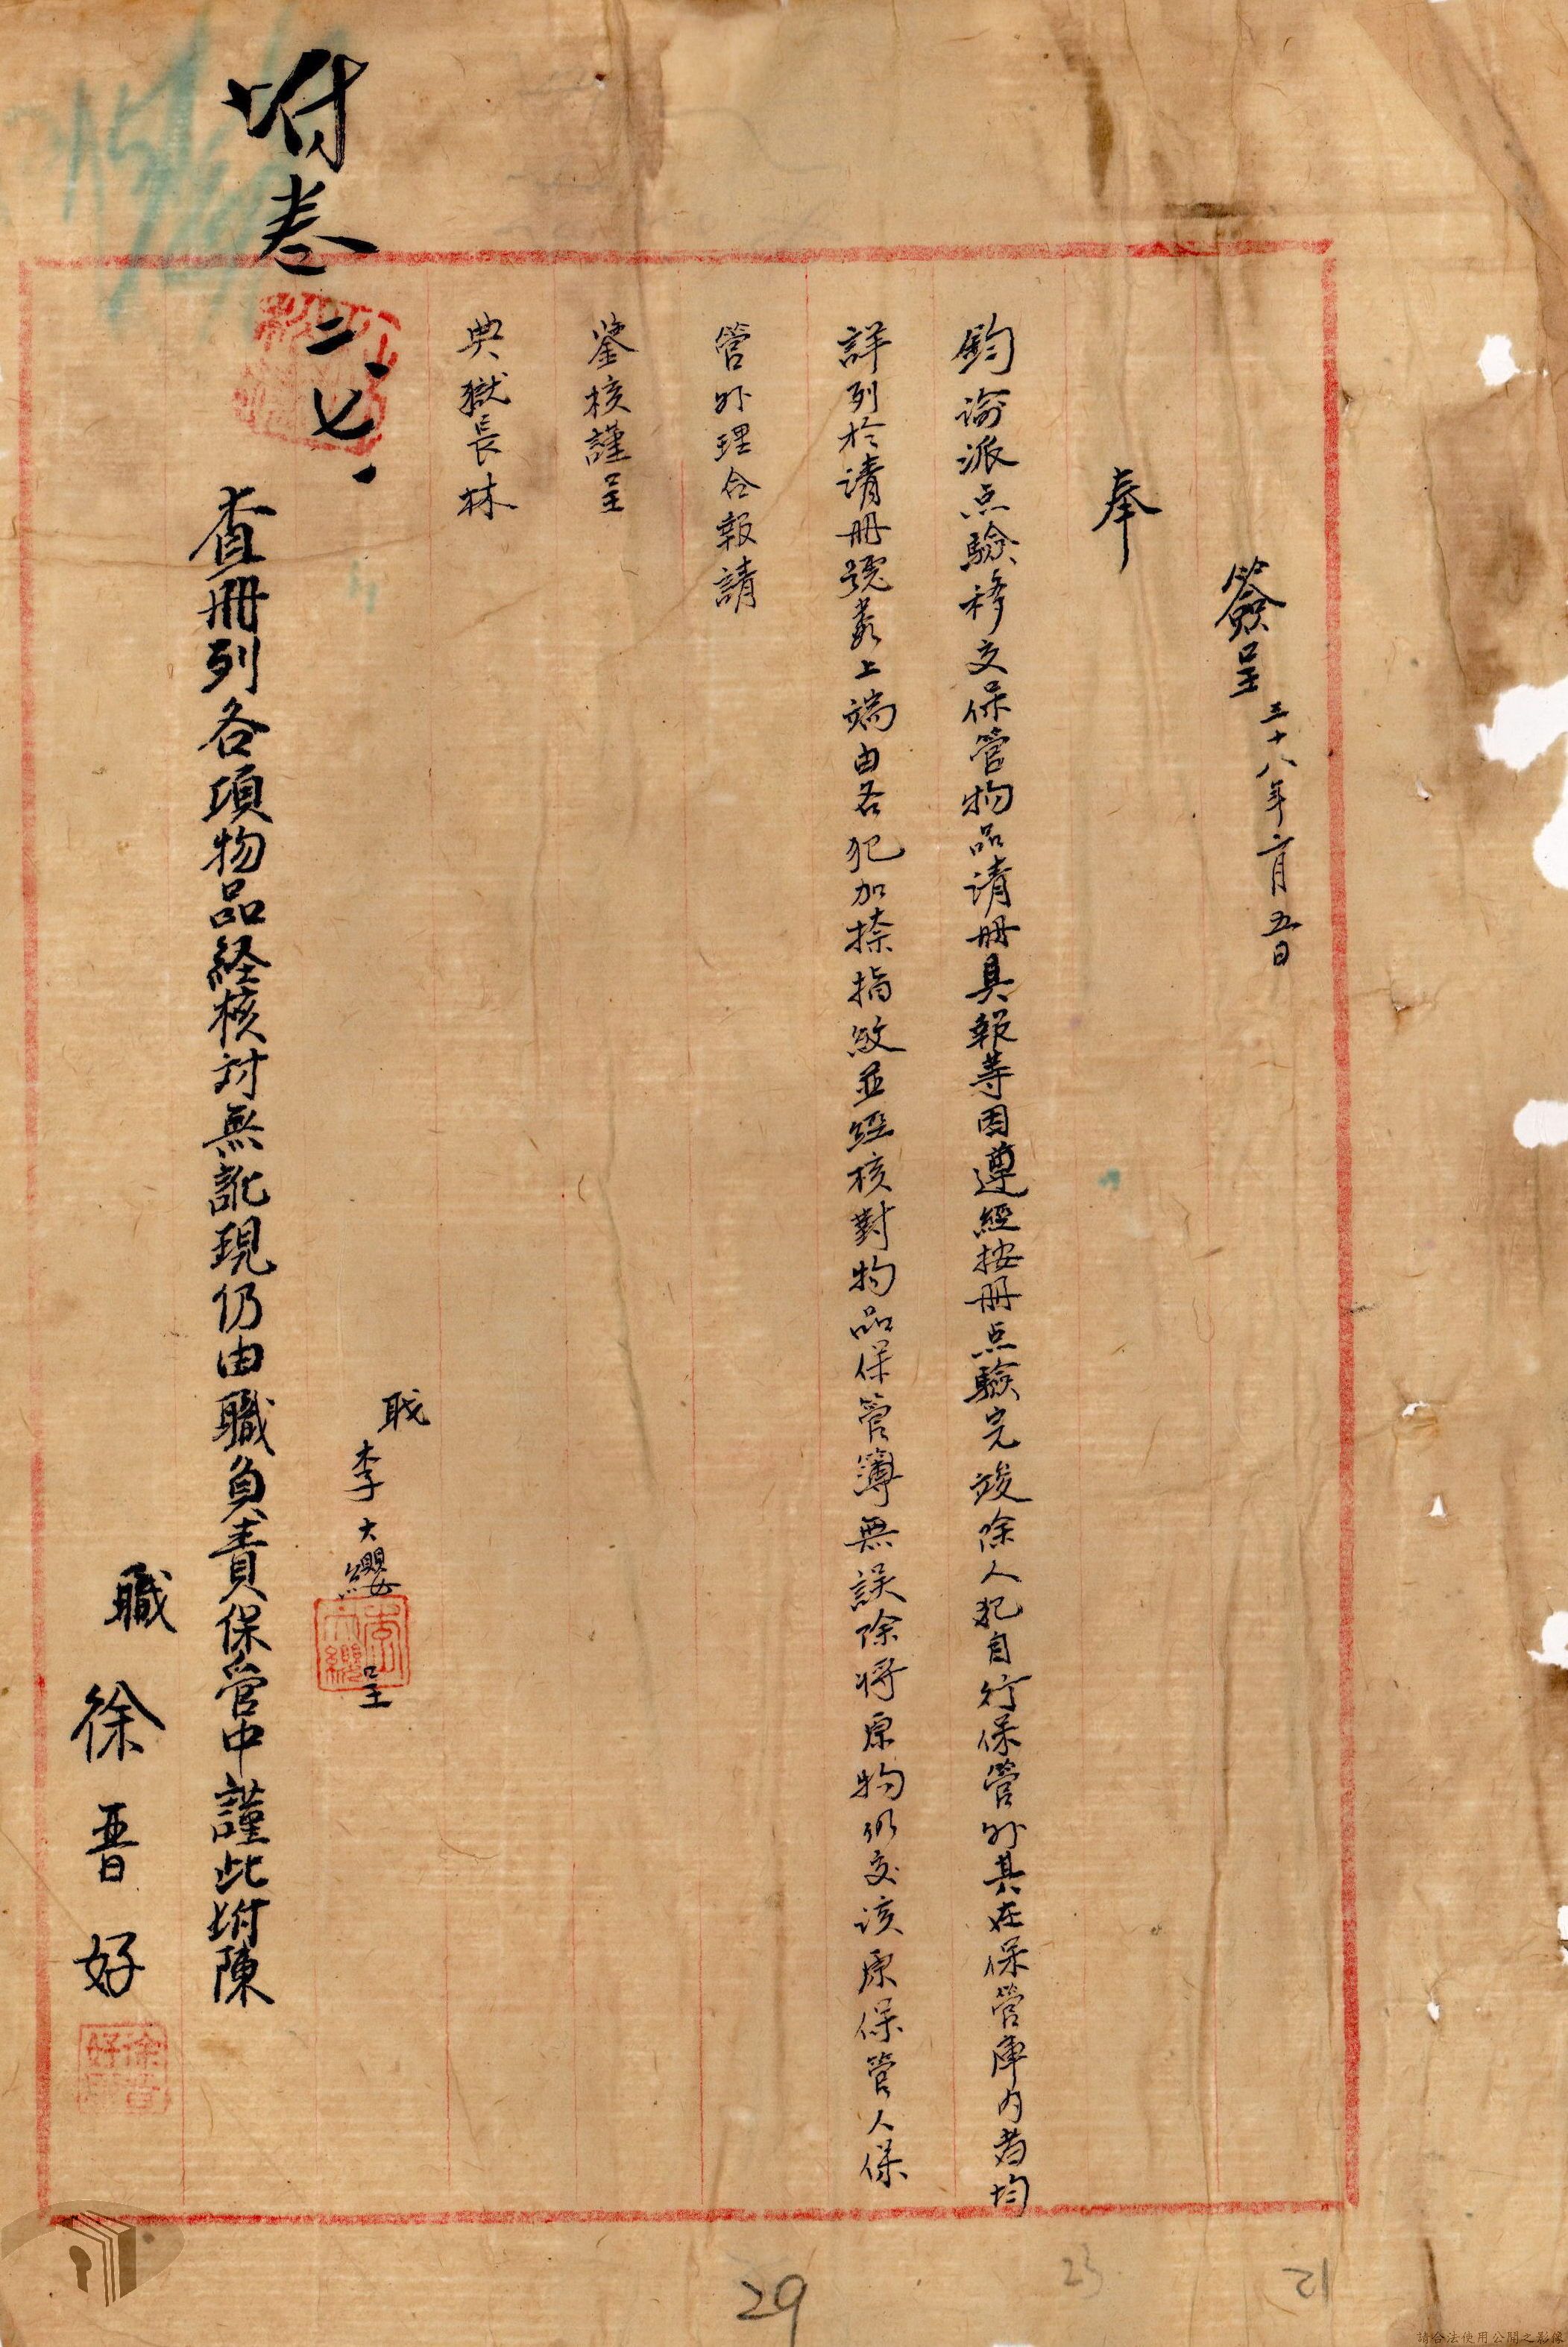 簽呈 三十八年二月五日
奉
鈞諭派点驗移交保管物品请冊具報等因遵經按冊点驗完竣除人犯自行保管外其在保管庫内者均
詳列於请冊號数上端由各犯加捺指紋並經核對物品保管簿無誤除将原物仍交该原保管人保
管外理合報請
鑒核謹呈
典獄長林
职李大纓呈
李大纓
附卷
二、七、
查冊列各項物品経核討無訛現仍由職負責保管中謹此附陳
職徐晋好
徐晋好印
29
23
21
請合法使用公開之影像